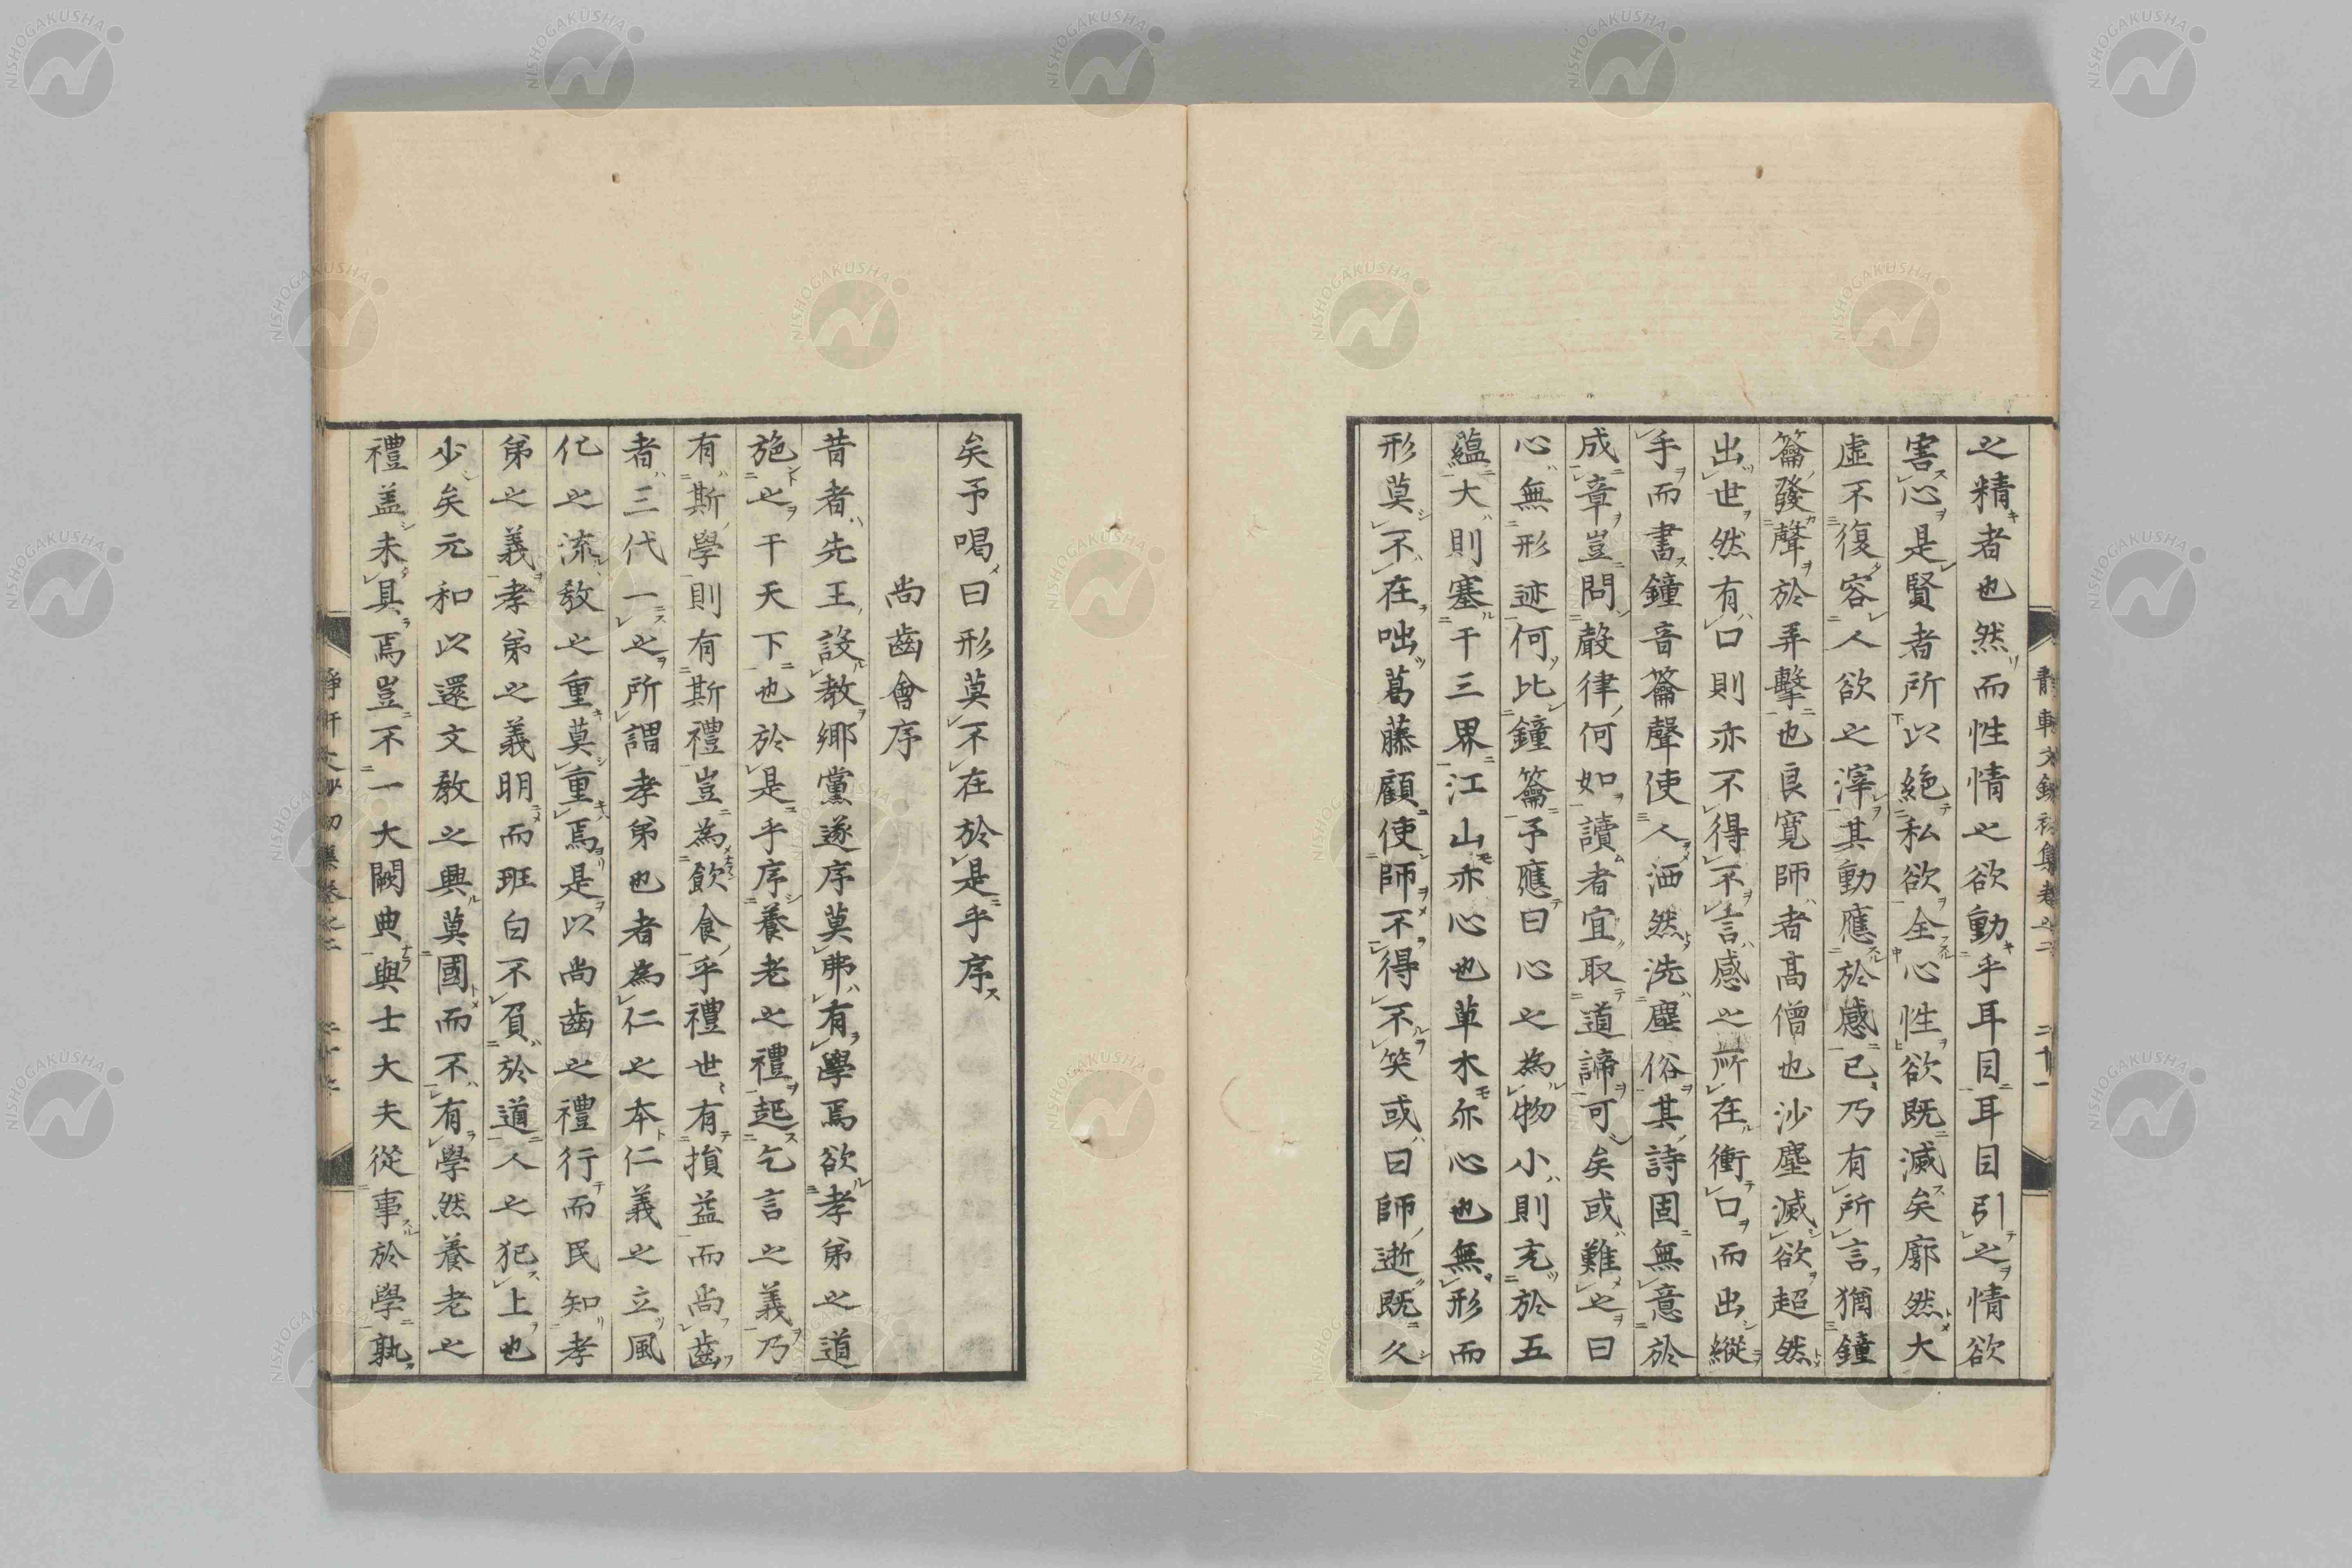 之精者也然而性情之欲動乎耳目耳目引之情欲
害心是賢者所以絕私欲全心性欲既滅矣廓然大
虛不復容人欲之滓其動應於感已乃有所言猶鐘
籥發聲於弄擊也良寬師者高僧也沙塵滅欲超然
出世然有口則亦不得不言感之所在衝口而出縱
手而書鐘音籥聲使人洒然洗塵俗其詩固無意於
成章豈問嚴律何如讀者宜取道諦可矣或難之曰
心無形迹何比鐘籥予應曰心之為物小則充於五
蘊大則塞于三界江山亦心也草木亦心也無形而
形莫不在咄葛藤顧使師不得不笑或曰師逝既久
矣予喝曰形莫不在於是乎序
尚齒會序
昔者先王設教鄉黨遂序莫弗有學焉欲孝弟之道
施之于天下也於是乎序養老之禮起乞言之義乃
有斯學則有斯禮豈為飲食乎禮世有損益而尚齒
者三代一之所謂孝弟也者為仁之本仁義之立風
化之流教之重莫重焉是以尚齒之禮行而民知孝
弟之義孝弟之義明而班白不負於道人之犯上也
少矣元和以還文教之興莫國而不有學然養老之
禮盖未具焉豈不一大闕典與士大夫從事於學孰
NISHOGAKUSHA